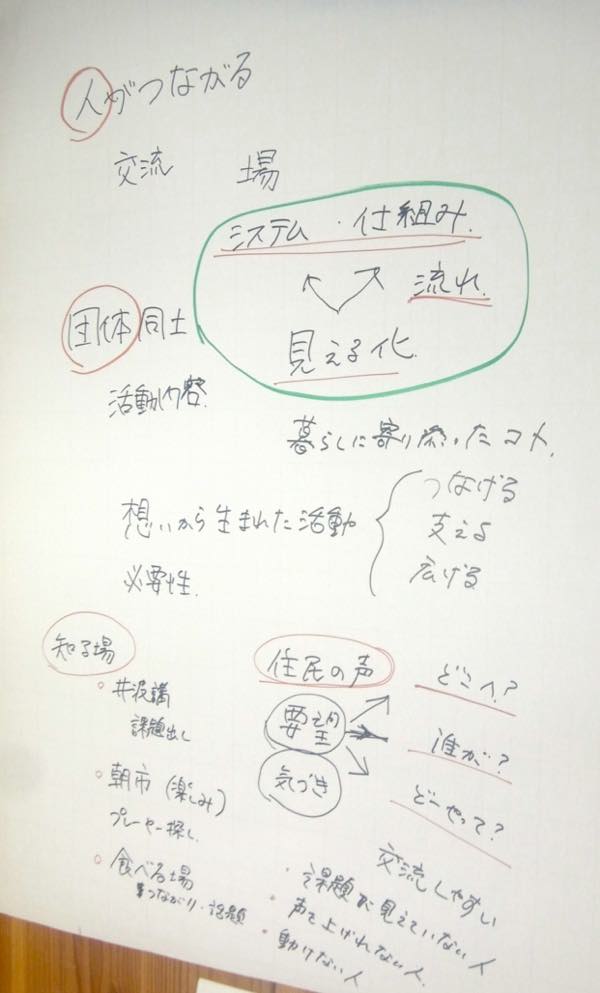 人がつながる
交流 場
システム・仕組み
流れ
見える化
団体同士
活動内容
暮らしに寄り添ったコト
想いから生まれた活動
つなげる
支える
広げる
必要性
知る場
井波講
課題出し
朝市(楽しみ)
プレーヤー探し
食べる場
つながり・話題
住民の声
要望
気づき
どこへ?
誰が?
どーやって?
交流しやすい
・課題が見えていない人
・声を上げれない人
・動けない人